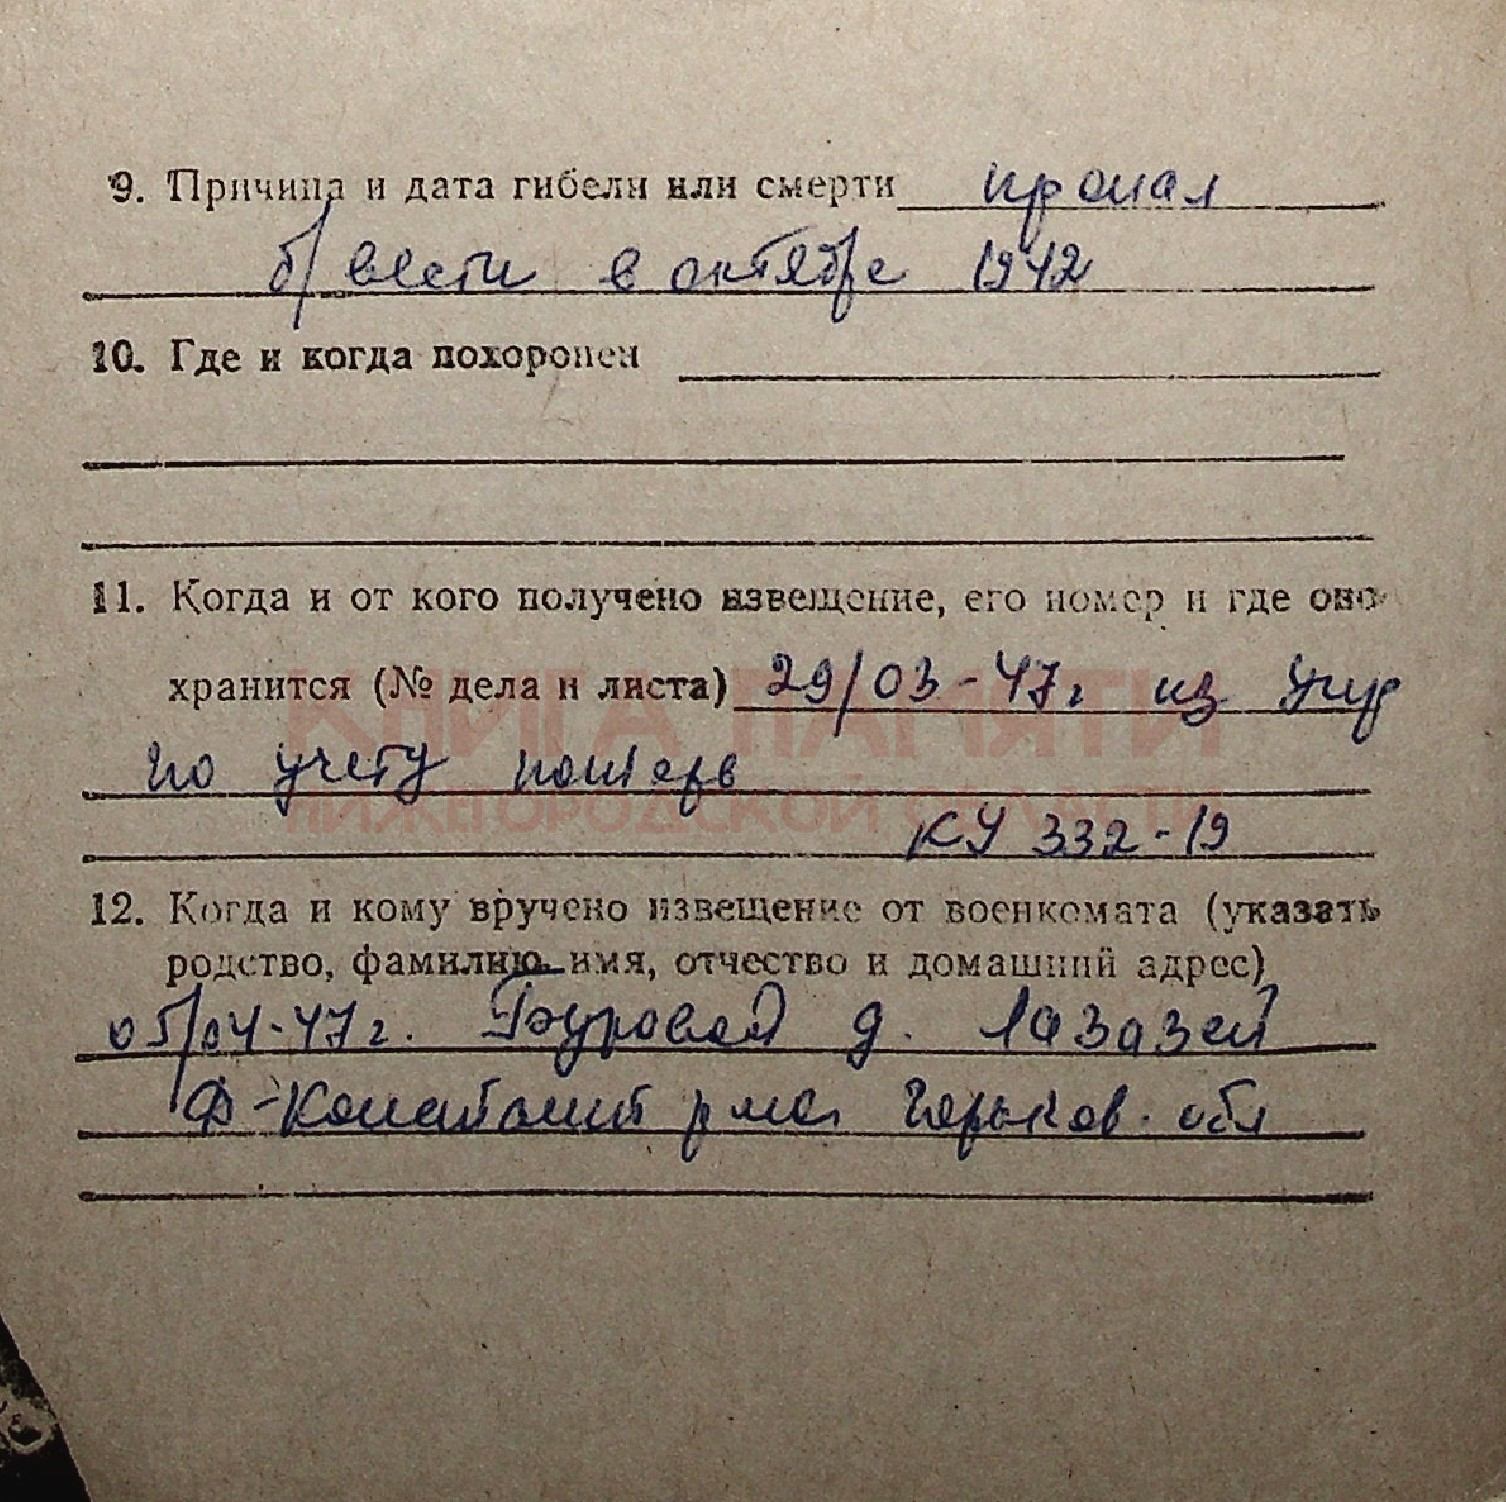 9. Причина и дата гибели или смерти пропал
б/вести в октябре 1942
10. Где и когда похоронен
11. Когда и от кого получено извещение, его номер и где оно
хранится (№ дела и листа) 29/03-47г из Упр
по учету потерь
КУ 332-19
12. Когда и кому вручено извещение от военкомата (указать
родство, фамилию, имя, отчество и домашний адрес)
05/04-47г. д. Лазазей
Д-Констант р-на Горьков. обл
КНИГА ПАМЯТИ
НИЖЕГОРОДСКОЙ ОБЛАСТИ